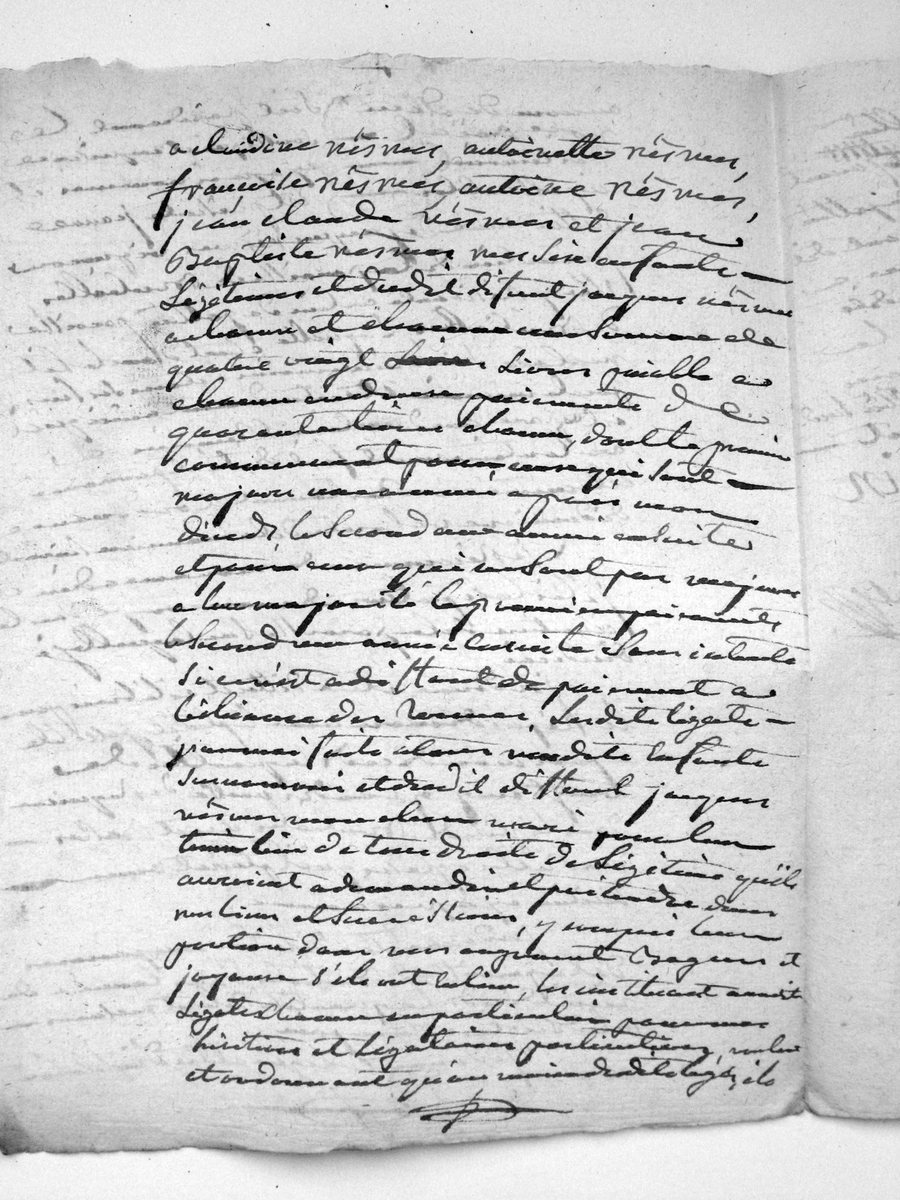 a claudine nesmes, antoinette nesmes,
françoise nesmes, antoine nesmes,
jean claude nesmes et jean
Baptiste nesmes mes six enfants
Légitimes et dudit défunt jacques nesmes
a chacun et chacune une somme de
quatre vingt Livres paiable a
chacun en deux paiements de
quarante livres chacun, dont le premier
commencera pour ceux qui sont
majeur une année après mon
décedz le Second une année ensuite
et pour ceux qui ne sont pas majeurs
a leur majorité le premier paiements
le second une année ensuite Sans intherets
Si ce n'est a deffaut de paiement a
l'échéance des termes, Lesdits légats
par moi faits a mes dits enfants
surnommé et dudit deffunt jacques
nesmes mon cher mari pour leur
tenir lieu de tous droits de Légitime qu'ils
auroient a demander et prétendre dans
mes biens et Succession, y compris leur
portion dans mes augment Bagues et
joyaux s'ils ont lieu, les instituant audit
Légats chacun en particulier pour mes
héritiers et Légataires particuliers, voulant
et ordonnant qu'au moien desdits legats, ils